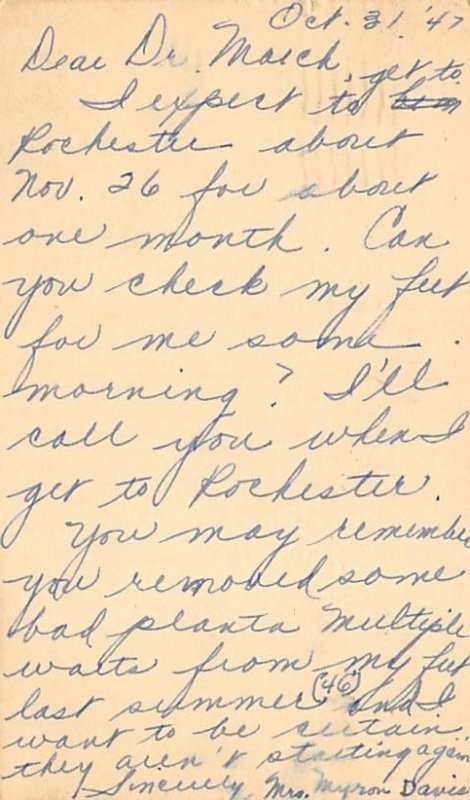 Oct. 31. '47
Dear Dr. March,
I expect to get to
Rochester about
Nov. 26 for about
one month. Can
you check my feet
for me some
morning? I'll
call you when I
get to Rochester.
You may remember
you removed some
bad planta multiple
warts from my feet
last summer ('46) and I
want to be certain
they aren't starting again.
Sincerely, Mrs. Myron Davis